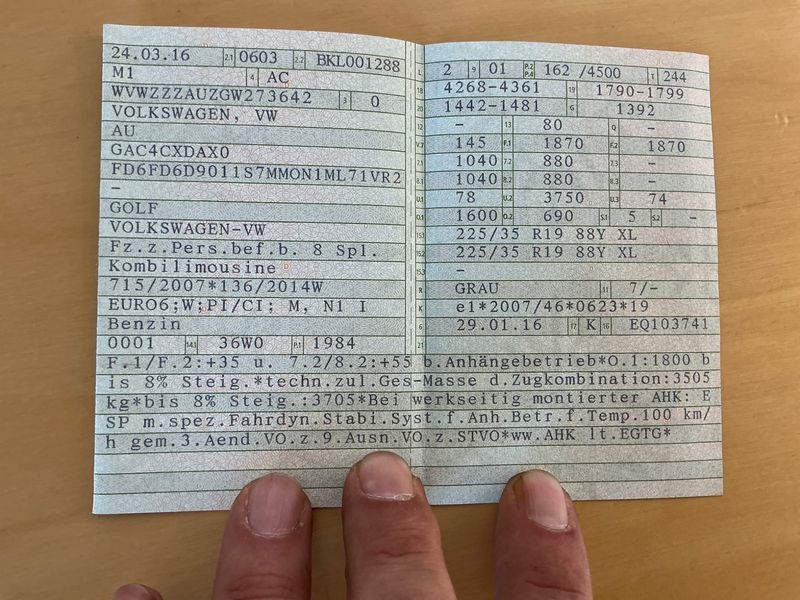 24.03.16 2.1 0603 2.2 BKL001288
M1 4 AC
WVWZZZAUZGW273642 3 0
VOLKSWAGEN, VW
AU
GAC4CXDAX0
FD6FD6D9011S7MMON1ML71VR2
-
GOLF
VOLKSWAGEN-VW
Fz.z.Pers.bef.b. 8 Spl.
Kombilimousine
715/2007*136/2014W
EURO6;W;PI/CI; M, N1 I
Benzin
0001 14.1 36W0 P.1 1984
L 2 9 01 P.2 P.4 162 /4500 T 244
18 4268-4361 19 1790-1799
20 1442-1481 G 1392
12 - 13 80 Q -
V.7 145 F.1 1870 F.2 1870
7.1 1040 7.2 880 7.3 -
8.1 1040 8.2 880 8.3 -
U.1 78 U.2 3750 U.3 74
O.1 1600 O.2 690 S.1 5 S.2 -
15.1 225/35 R19 88Y XL
15.2 225/35 R19 88Y XL
15.3 -
R GRAU 11 7/-
K e1*2007/46*0623*19
6 29.01.16 17 K 16 EQ103741
21
F.1/F.2:+35 u. 7.2/8.2:+55 b.Anhängebetrieb*O.1:1800 b
is 8% Steig.*techn.zul.Ges-Masse d.Zugkombination:3505
kg*bis 8% Steig.:3705*Bei werkseitig montierter AHK: E
SP m.spez.Fahrdyn.Stabi.Syst.f.Anh.Betr.f.Temp.100 km/
h gem.3.Aend.VO.z.9.Ausn.VO.z.STVO*ww.AHK lt.EGTG*